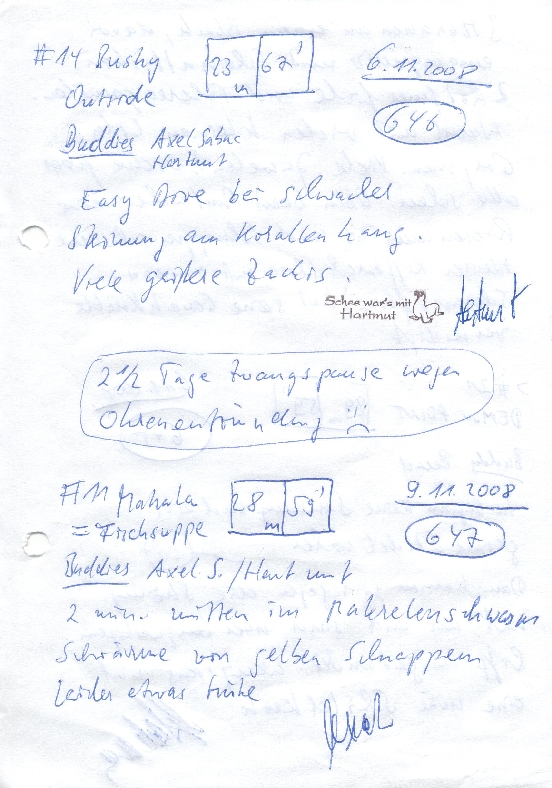 #14 Bushy
Outside
23 m 62'
6.11.2008
646
Buddies Axel Sabac
Hartmut
Easy Dive bei schwacher
Strömung am Korallenhang.
Viele größere Zackis.
Schee war's mit
Hartmut
Hartmut
2 1/2 Tage Zwangspause wegen
Ohrenentzündung
#11 Mahala
= Fischsuppe
28 m 59'
9.11.2008
647
Buddies Axel S./Hartmut
2 min. mitten im Makrelenschwarm
Schwärme von gelben Schnappern
Leider etwas trübe